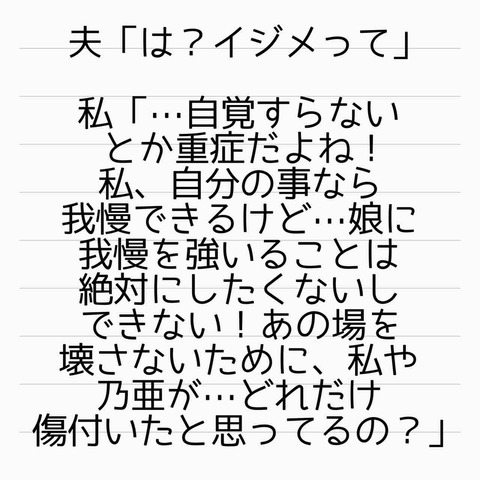 夫「は？イジメって」
私「…自覚すらない
とか重症だよね！
私、自分の事なら
我慢できるけど…娘に
我慢を強いることは
絶対にしたくないし
できない！あの場を
壊さないために、私や
乃亜が…どれだけ
傷付いたと思ってるの？」